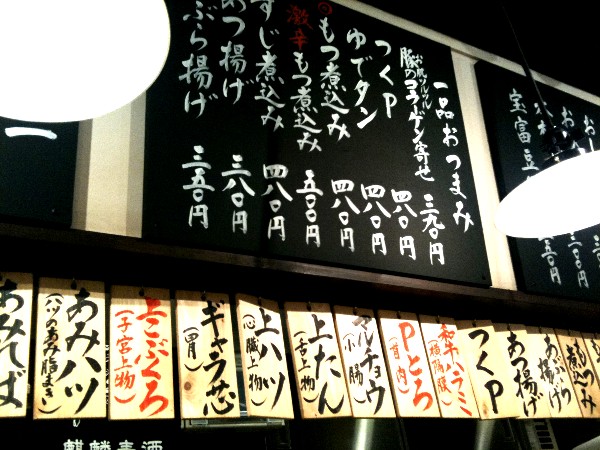 一品おつまみ
お肌ツルツル
豚のコラーゲン寄せ 三九〇円
つくP 四八〇円
ゆでタン 四八〇円
もつ煮込み 四八〇円
激辛もつ煮込み 五〇〇円
すじ煮込み 四八〇円
あつ揚げ 三八〇円
ぶら揚げ 三五〇円
宝富豆
もつ煮込み
あぶら揚げ
あつ揚げ
つくP
和牛ハラミ
(横隔膜)
Pとろ
(首肉)
マルチョウ
(小腸)
上たん
(舌上物)
上ハツ
(心臓上物)
ギャラ芯
(胃)
上こぶくろ
(子宮上物)
あみハツ
(ハツのあみ脂まき)
あみればー
麒麟麦酒